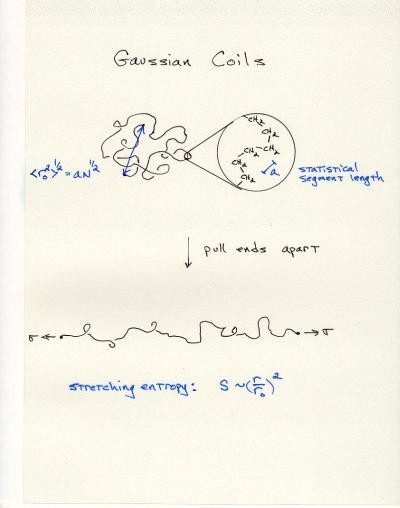 Gaussian Coils
CH₂
CH₂
CH₂-CH₂
CH₂
CH₂
a
<r₀²>^1/2 = aN^1/2
statistical
segment length
pull ends apart
σ ← → σ
stretching entropy: S ~ (r/r₀)²